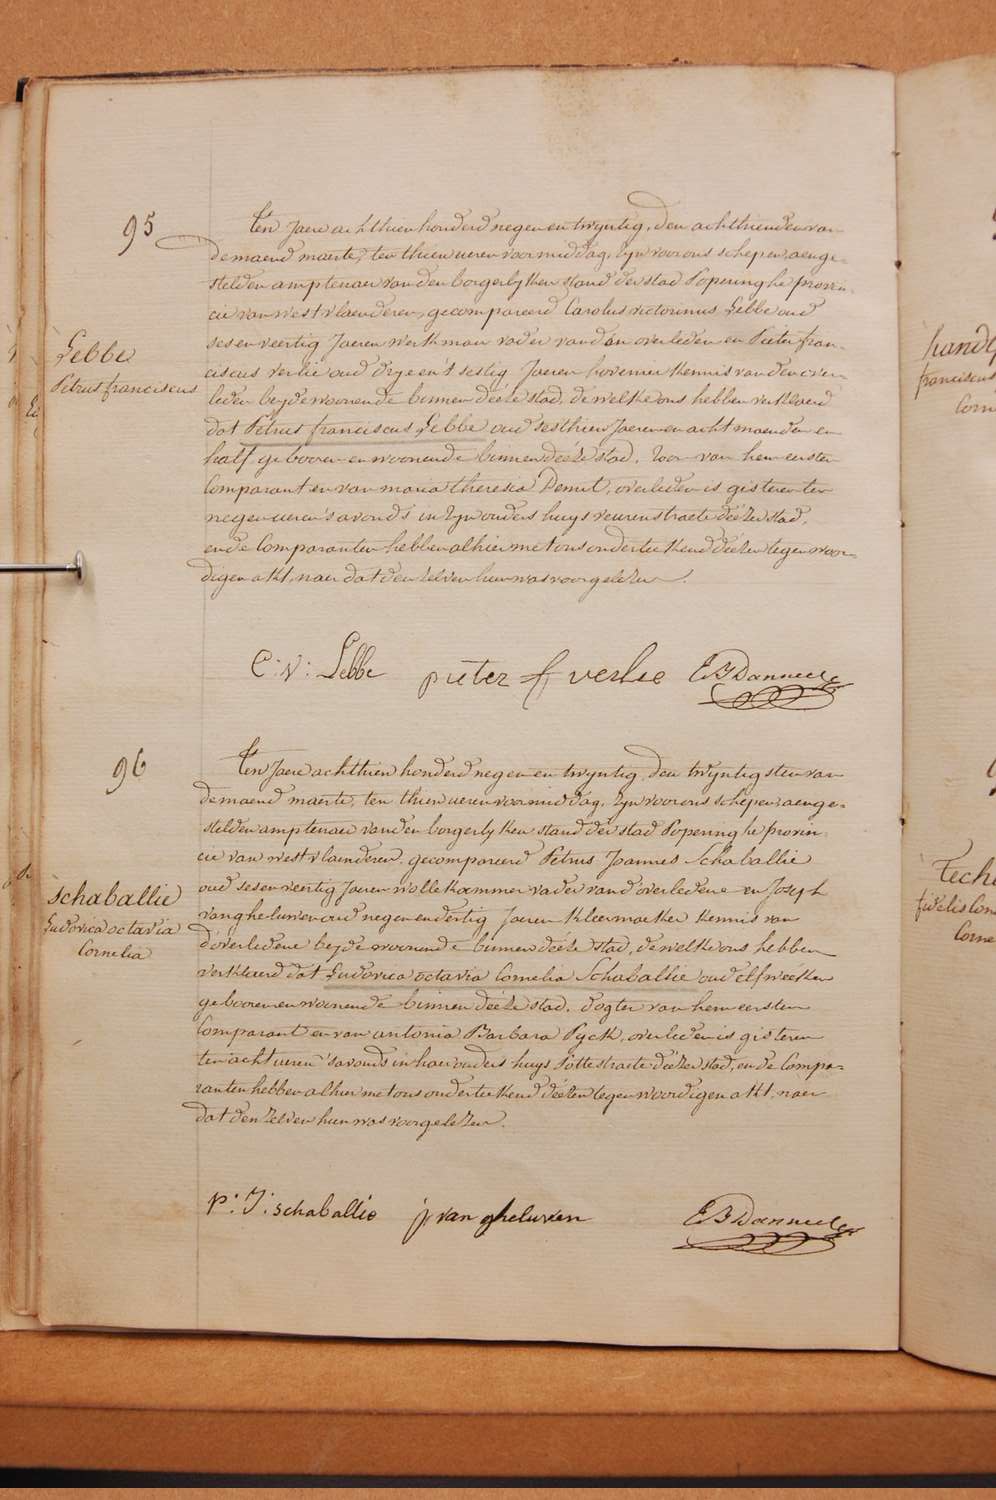 95
Lebbe
Petrus franciscus
Ten Jaere achthien honderd negen en twyntig, den achthienden van
de maend maerte, ten thien ueren voormiddag, zyn voor ons schepen, aenge-
stelden amptenaer van den borgerlyken stand der stad Poperinghe provin-
cie van westvlaenderen, gecompareerd Carolus victorinus Lebbe oud
ses en veertig Jaeren werkman vader van den overleden en Pieter fran-
ciscus verlie oud drye en 't sestig Jaeren hovenier kennis van den over-
leden beyde woonende binnen deéze stad, de welke ons hebben verklaerd
dat Petrus franciscus Lebbe oud sesthien Jaeren en acht maenden en
half geboren en woonende binnen deéze stad, zoon van hem eersten
Comparant en van maria theresia Demit, overleden is gisteren ten
negen ueren s'avonds in zyn ouders huys veurenstraete deézer stad,
ende Comparanten hebben alhier met ons onderteekend deézen tegenwoor-
digen akt, naer dat den zelven hun was voorgelezen.
C: V: Lebbe pieter f verlie E B Danneel
96
schaballie
Ludovica octavia
Cornelia
Ten Jaere achthien honderd negen en twyntig, den twyntigsten van
de maend maerte, ten thien ueren voormiddag, zyn voor ons schepen, aenge-
stelden amptenaer van den borgerlyken stand der stad Poperinghe provin-
cie van westvlaenderen, gecompareerd Petrus Joannes Schaballie
oud ses en veertig Jaeren wollekammer vader van d'overledene en Joseph
vangheluwen oud negen en dertig Jaeren kleermaeker kennis van
d'overledene beyde woonende binnen deéze stad, de welke ons hebben
verklaerd dat Ludovica octavia Cornelia Schaballie oud elf weeken
geboren en woonende binnen deéze stad, dogter van hem eersten
Comparant en van antonia Barbara Pyck, overleden is gisteren
ten acht ueren 's avonds in haer ouders huys Pottestraete deézer stad, ende Compa-
ranten hebben alhier met ons onderteekend deézen tegenwoordigen akt, naer
dat den zelven hun was voorgelezen.
P: J: schaballie j van gheluwen E B Danneel